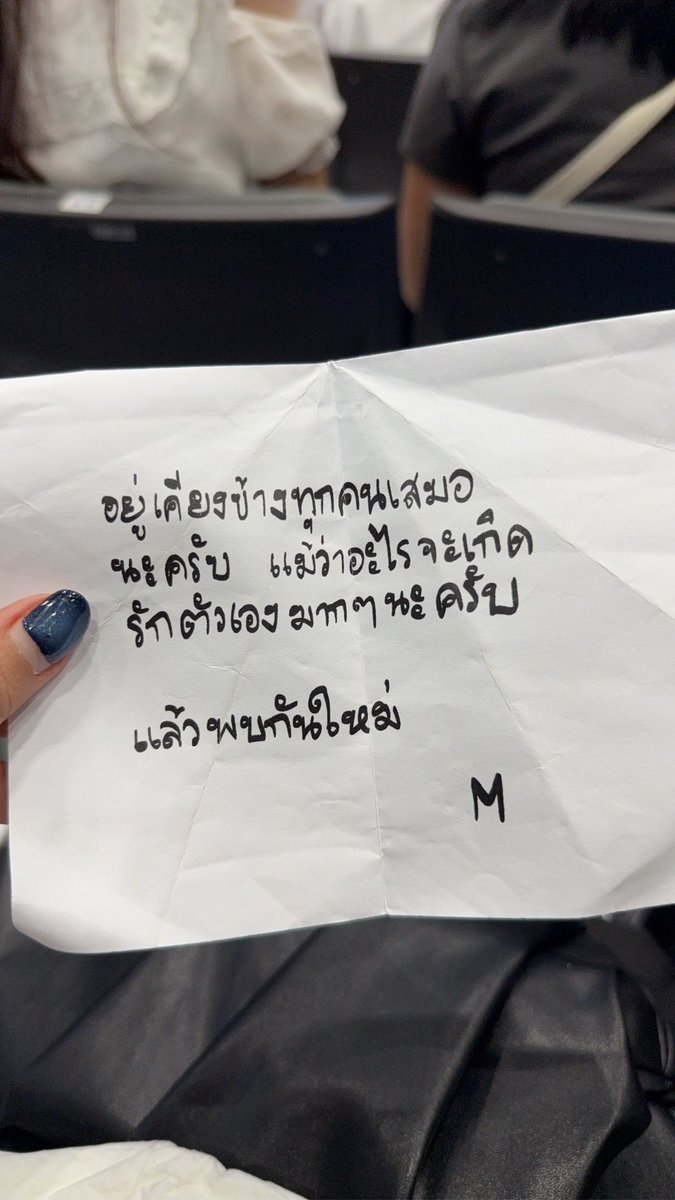 อยู่เคียงข้างทุกคนเสมอ
นะครับ แม้ว่าอะไรจะเกิด
รักตัวเองมากๆนะครับ
แล้วพบกันใหม่
M